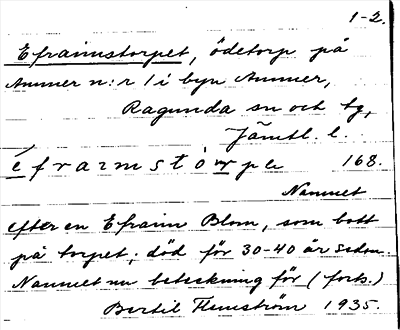 1-2.
Efraimstorpet, ödetorp på
Ammer n:r 1 i byn Ammer,
Ragunda sn och tg,
Jämtl. l.
éfraimstòrpe 168.
Namnet
efter en Efraim Blom, som bott
på torpet; död för 30-40 år sedan.
Namnet nu beteckning för (forts.)
Bertil Flemström 1935.